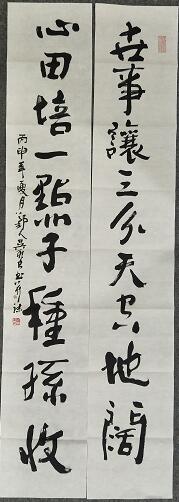 世事讓三分天空地闊
心田培一點子種孫收
丙申年夏月